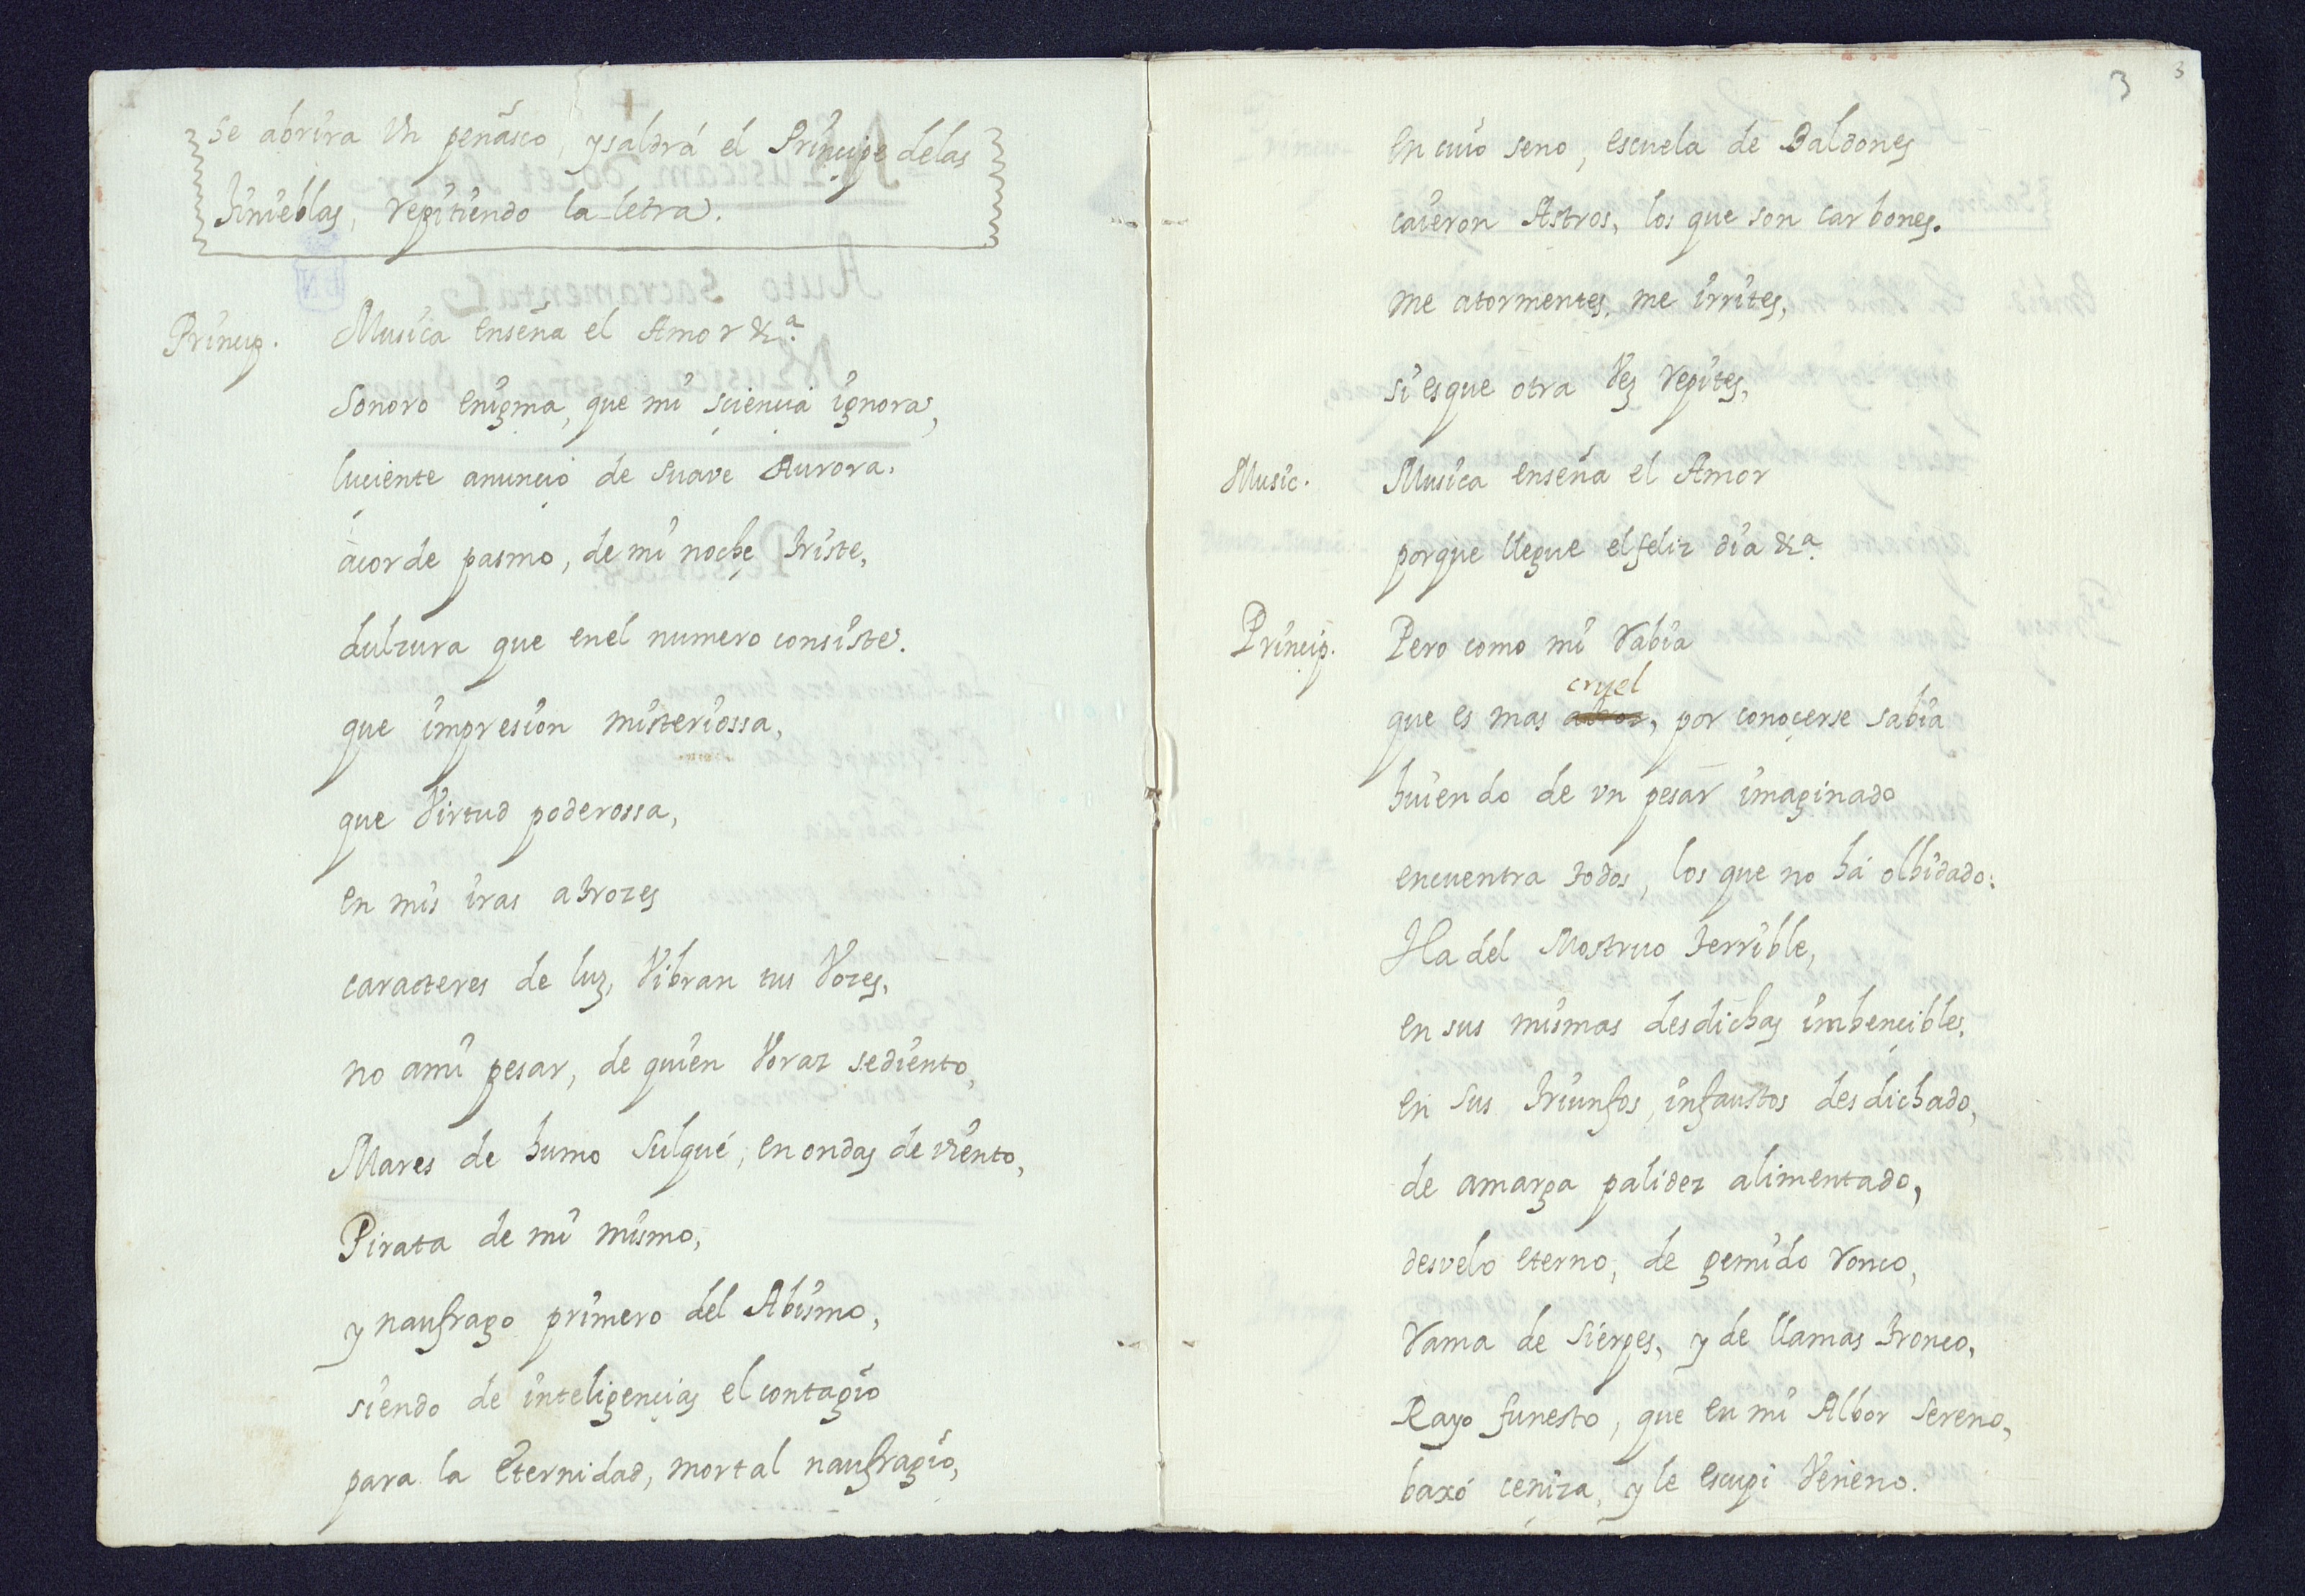 Se abrira Vn peñasco, y saldrá el Principe delas
tinieblas, repitiendo la letra.
Princip. Musica enseña el Amor &ª.
Sonoro enigma, que mi sciençia ignora,
luçiente anunçio de suave Aurora,
acorde pasmo, de mi noche triste,
dulzura que enel numero consiste.
que impresion misteriossa,
que Virtud poderossa,
en mis iras atrozes
caracteres de luz, Vibran tus Vozes,
no ami pesar, de quien Voraz sediento,
Mares de humo sulqué, en ondas de viento,
Pirata de mi mismo,
y naufrago primero del Abismo,
siendo de inteligençias el contagio
para la eternidad, mortal naufragio,
3
3
en cuio seno, escuela de Baldones
caieron Astros, los que son carbones.
me atormentes, me irrites,
si esque otra Vez repites,
Music. Musica enseña el Amor
porque llegue elfeliz dia &ª.
Princip. Pero como mi rabia
cruel
que es mas atroz, por conoçerse sabia
huiendo de vn pesar imaginado
encuentra todos, los que no há olbidado:
Ha del Mostruo terrible,
en sus mismas desdichas imbençibles,
en sus triunfos, infaustos desdichado,
de amarga palidez alimentado,
desvelo eterno, de gemido ronco,
rama de sierpes, y de llamas tronco,
Rayo funesto, que en mi Albor sereno,
baxó çeniza, y le escupi Veneno.